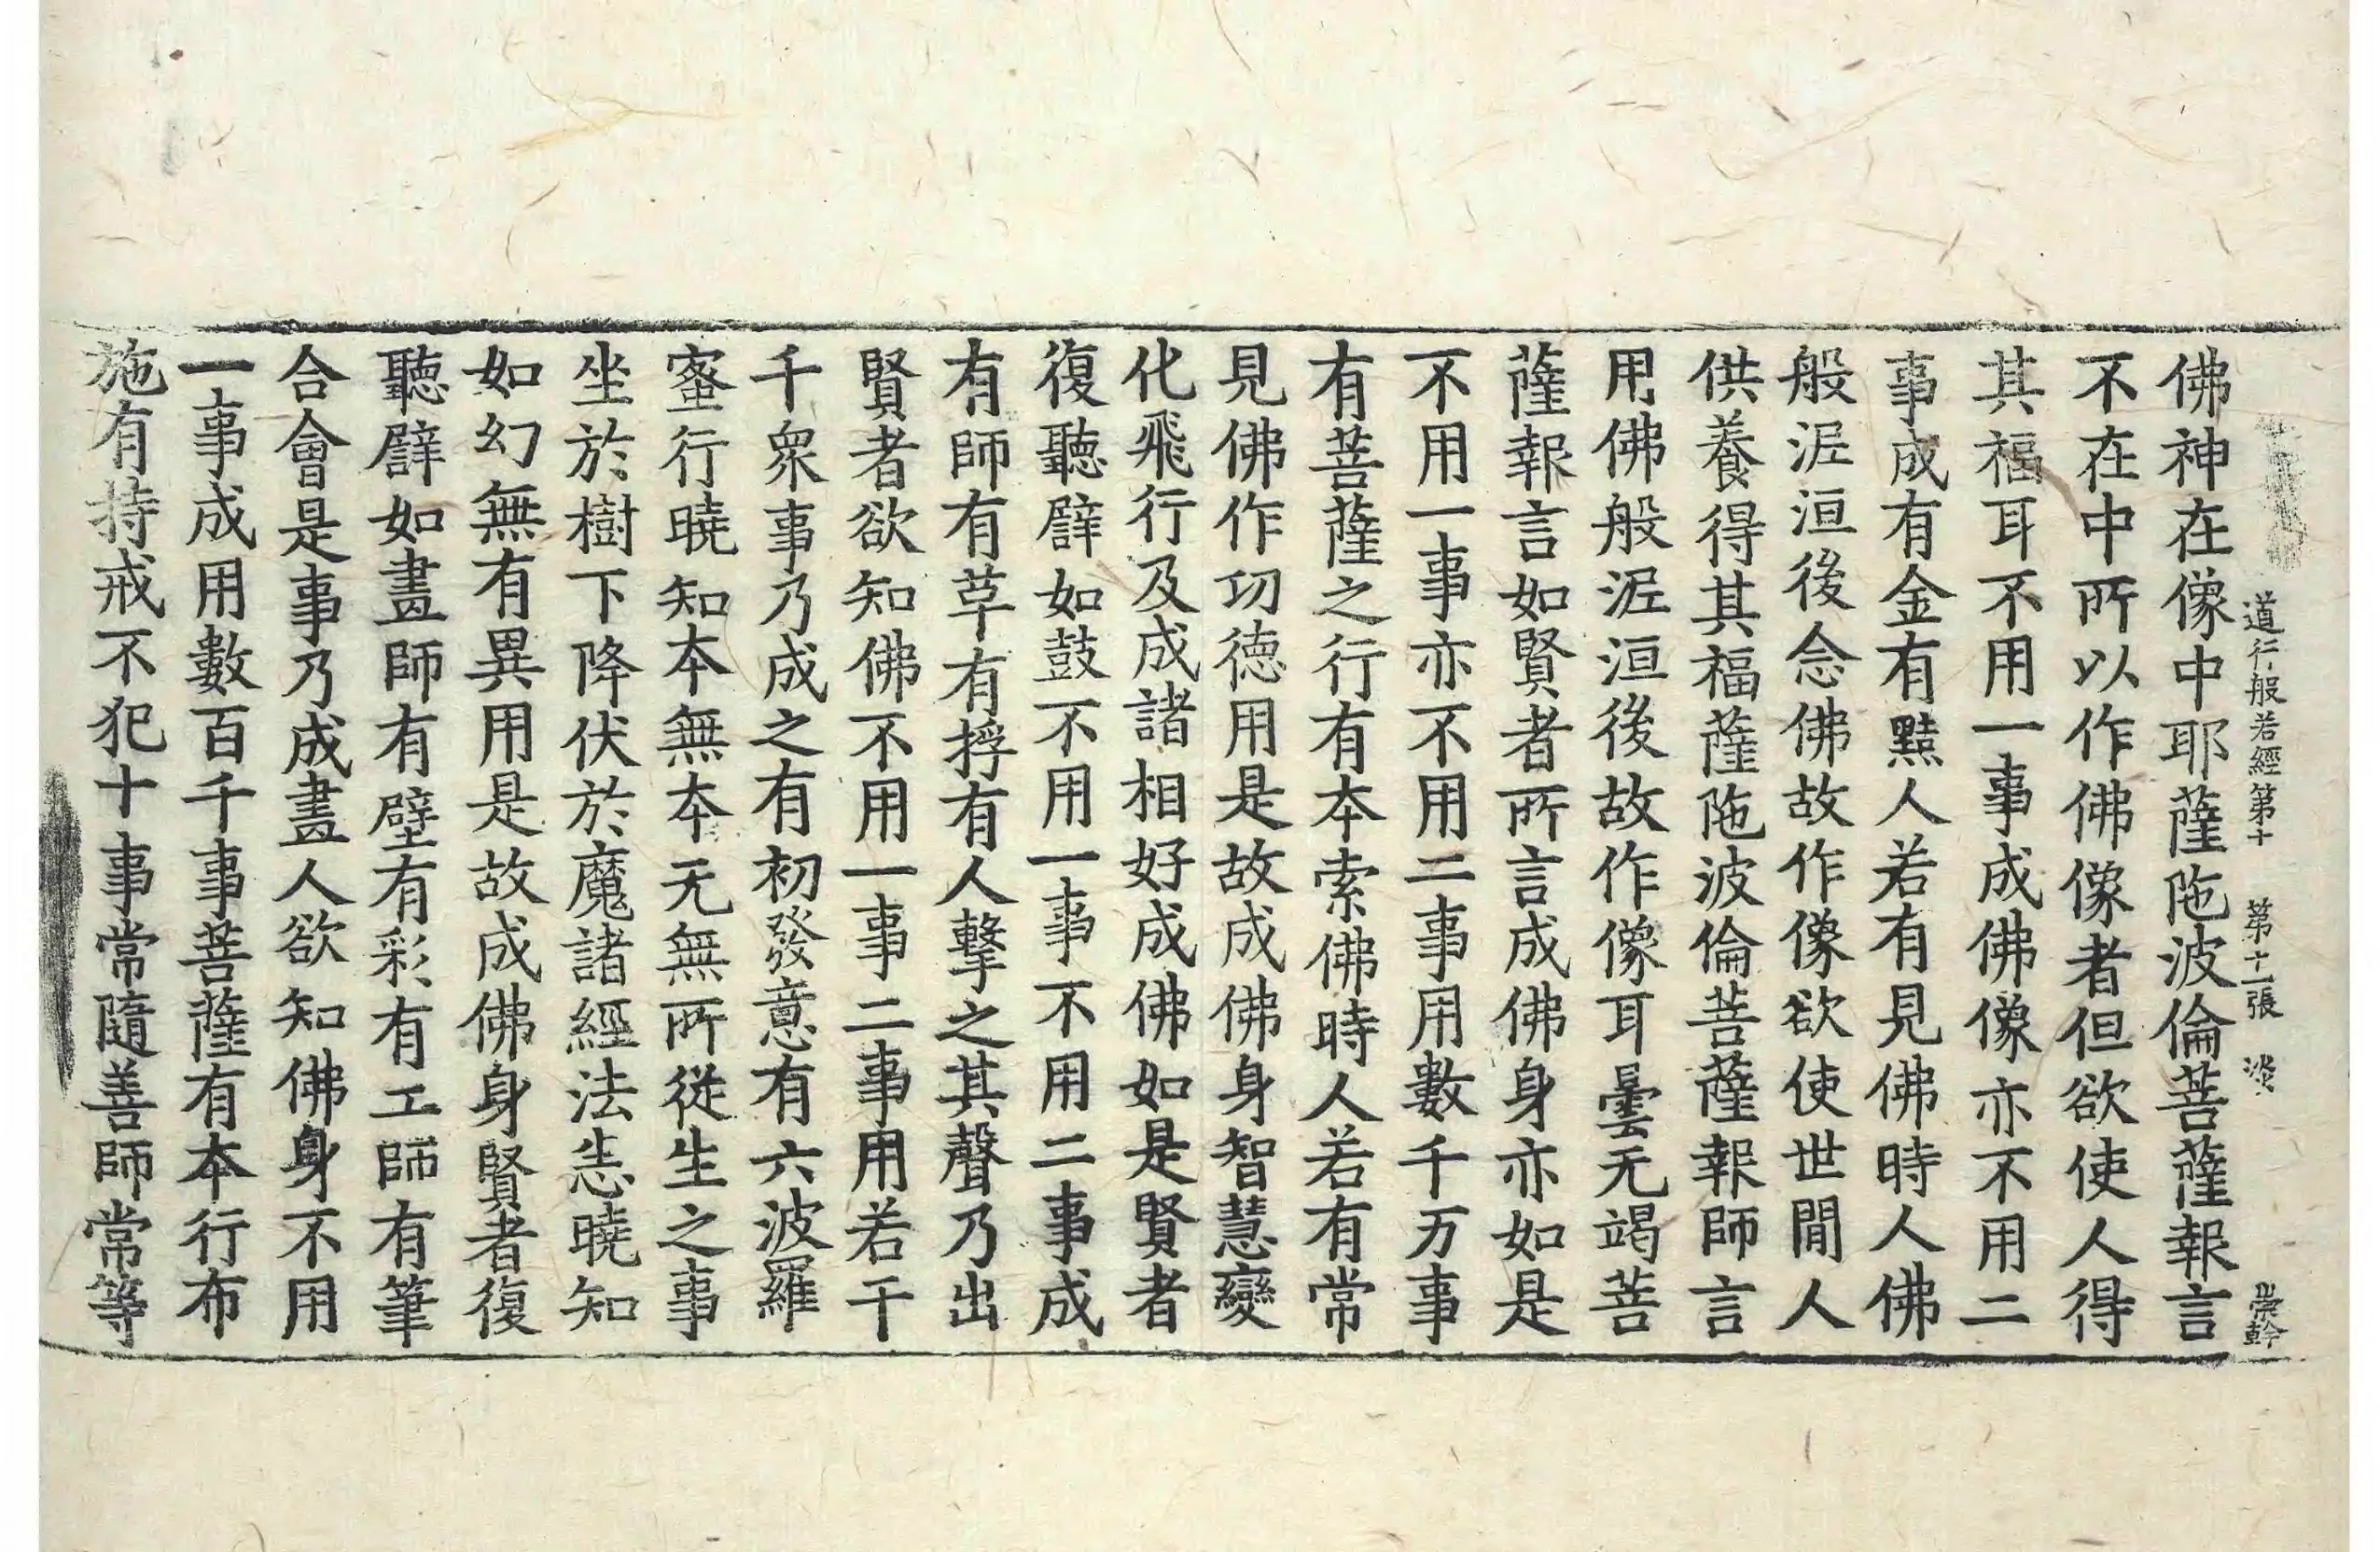 道行般若經第十 第十一張 淡
佛神在像中耶薩陁波倫菩薩報言
不在中所以作佛像者但欲使人得
其福耳不用一事成佛像亦不用二
事成有金有黠人若有見佛時人佛
般泥洹後念佛故作像欲使世間人
供養得其福薩陁波倫菩薩報師言
用佛般泥洹後故作像耳曇无竭菩
薩報言如賢者所言成佛身亦如是
不用一事亦不用二事用數千万事
有菩薩之行有本索佛時人若有常
見佛作功德用是故成佛身智慧變
化飛行及成諸相好成佛如是賢者
復聽譬如鼓不用一事不用二事成
有師有草有捊有人擊之其聲乃出
賢者欲知佛不用一事二事用若干
千衆事乃成之有初發意有六波羅
蜜行曉知本無本无無所從生之事
坐於樹下降伏於魔諸經法悉曉知
如幻無有異用是故成佛身賢者復
聽譬如畫師有壁有彩有工師有筆
合會是事乃成畫人欲知佛身不用
一事成用數百千事菩薩有本行布
施有持戒不犯十事常隨善師常等